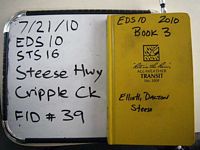 7/21/10
EDS10
STS16
Steese Hwy
Cripple Ck
FID # 39
EDS10 2010
Book 3
Rite in the Rain
ALL-WEATHER
TRANSIT
Elliott, Dalton
Steese